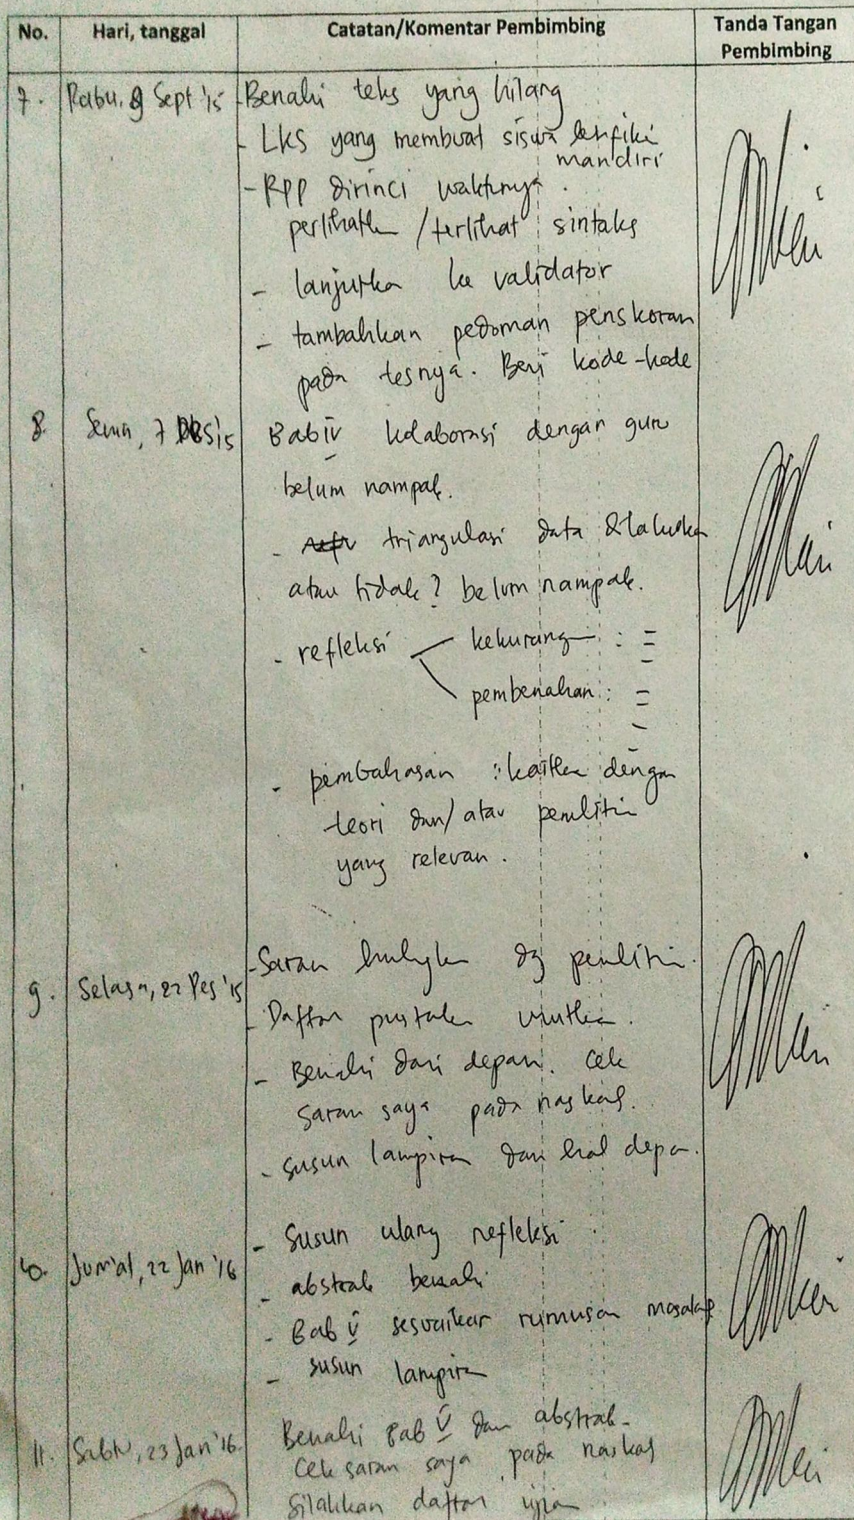 No. Hari, tanggal Catatan/Komentar Pembimbing Tanda Tangan Pembimbing
7. Rabu, 9 Sept '15 - Benahi teks yang hilang
- LKS yang membuat siswa berfikir
mandiri
- RPP dirinci waktunya.
perlihatkan / terlihat sintaks
- lanjutkan ke validator
- tambahkan pedoman penskoran
pada tesnya. Beri kode-kode
8. Senin, 7 Des 15 Bab IV kolaborasi dengan guru
belum nampak.
- triangulasi data dilakukan
atau tidak? belum nampak.
- refleksi kekurangan :
pembenahan :
- pembahasan : kaitkan dengan
teori dan/atau penelitian
yang relevan.
9. Selasa, 22 Des '15 - Saran hubungkan dg penelitian.
- Daftar pustaka urutkan.
- Benahi dari depan. Cek
saran saya pada naskah.
- susun lampiran dan hal depan.
10. Jum'at, 22 Jan '16 - Susun ulang refleksi
- abstrak benahi
- Bab V sesuaikan rumusan masalah
- susun lampiran
11. Sabtu, 23 Jan '16. Benahi Bab V dan abstrak.
Cek saran saya pada naskah
Silahkan daftar ujian